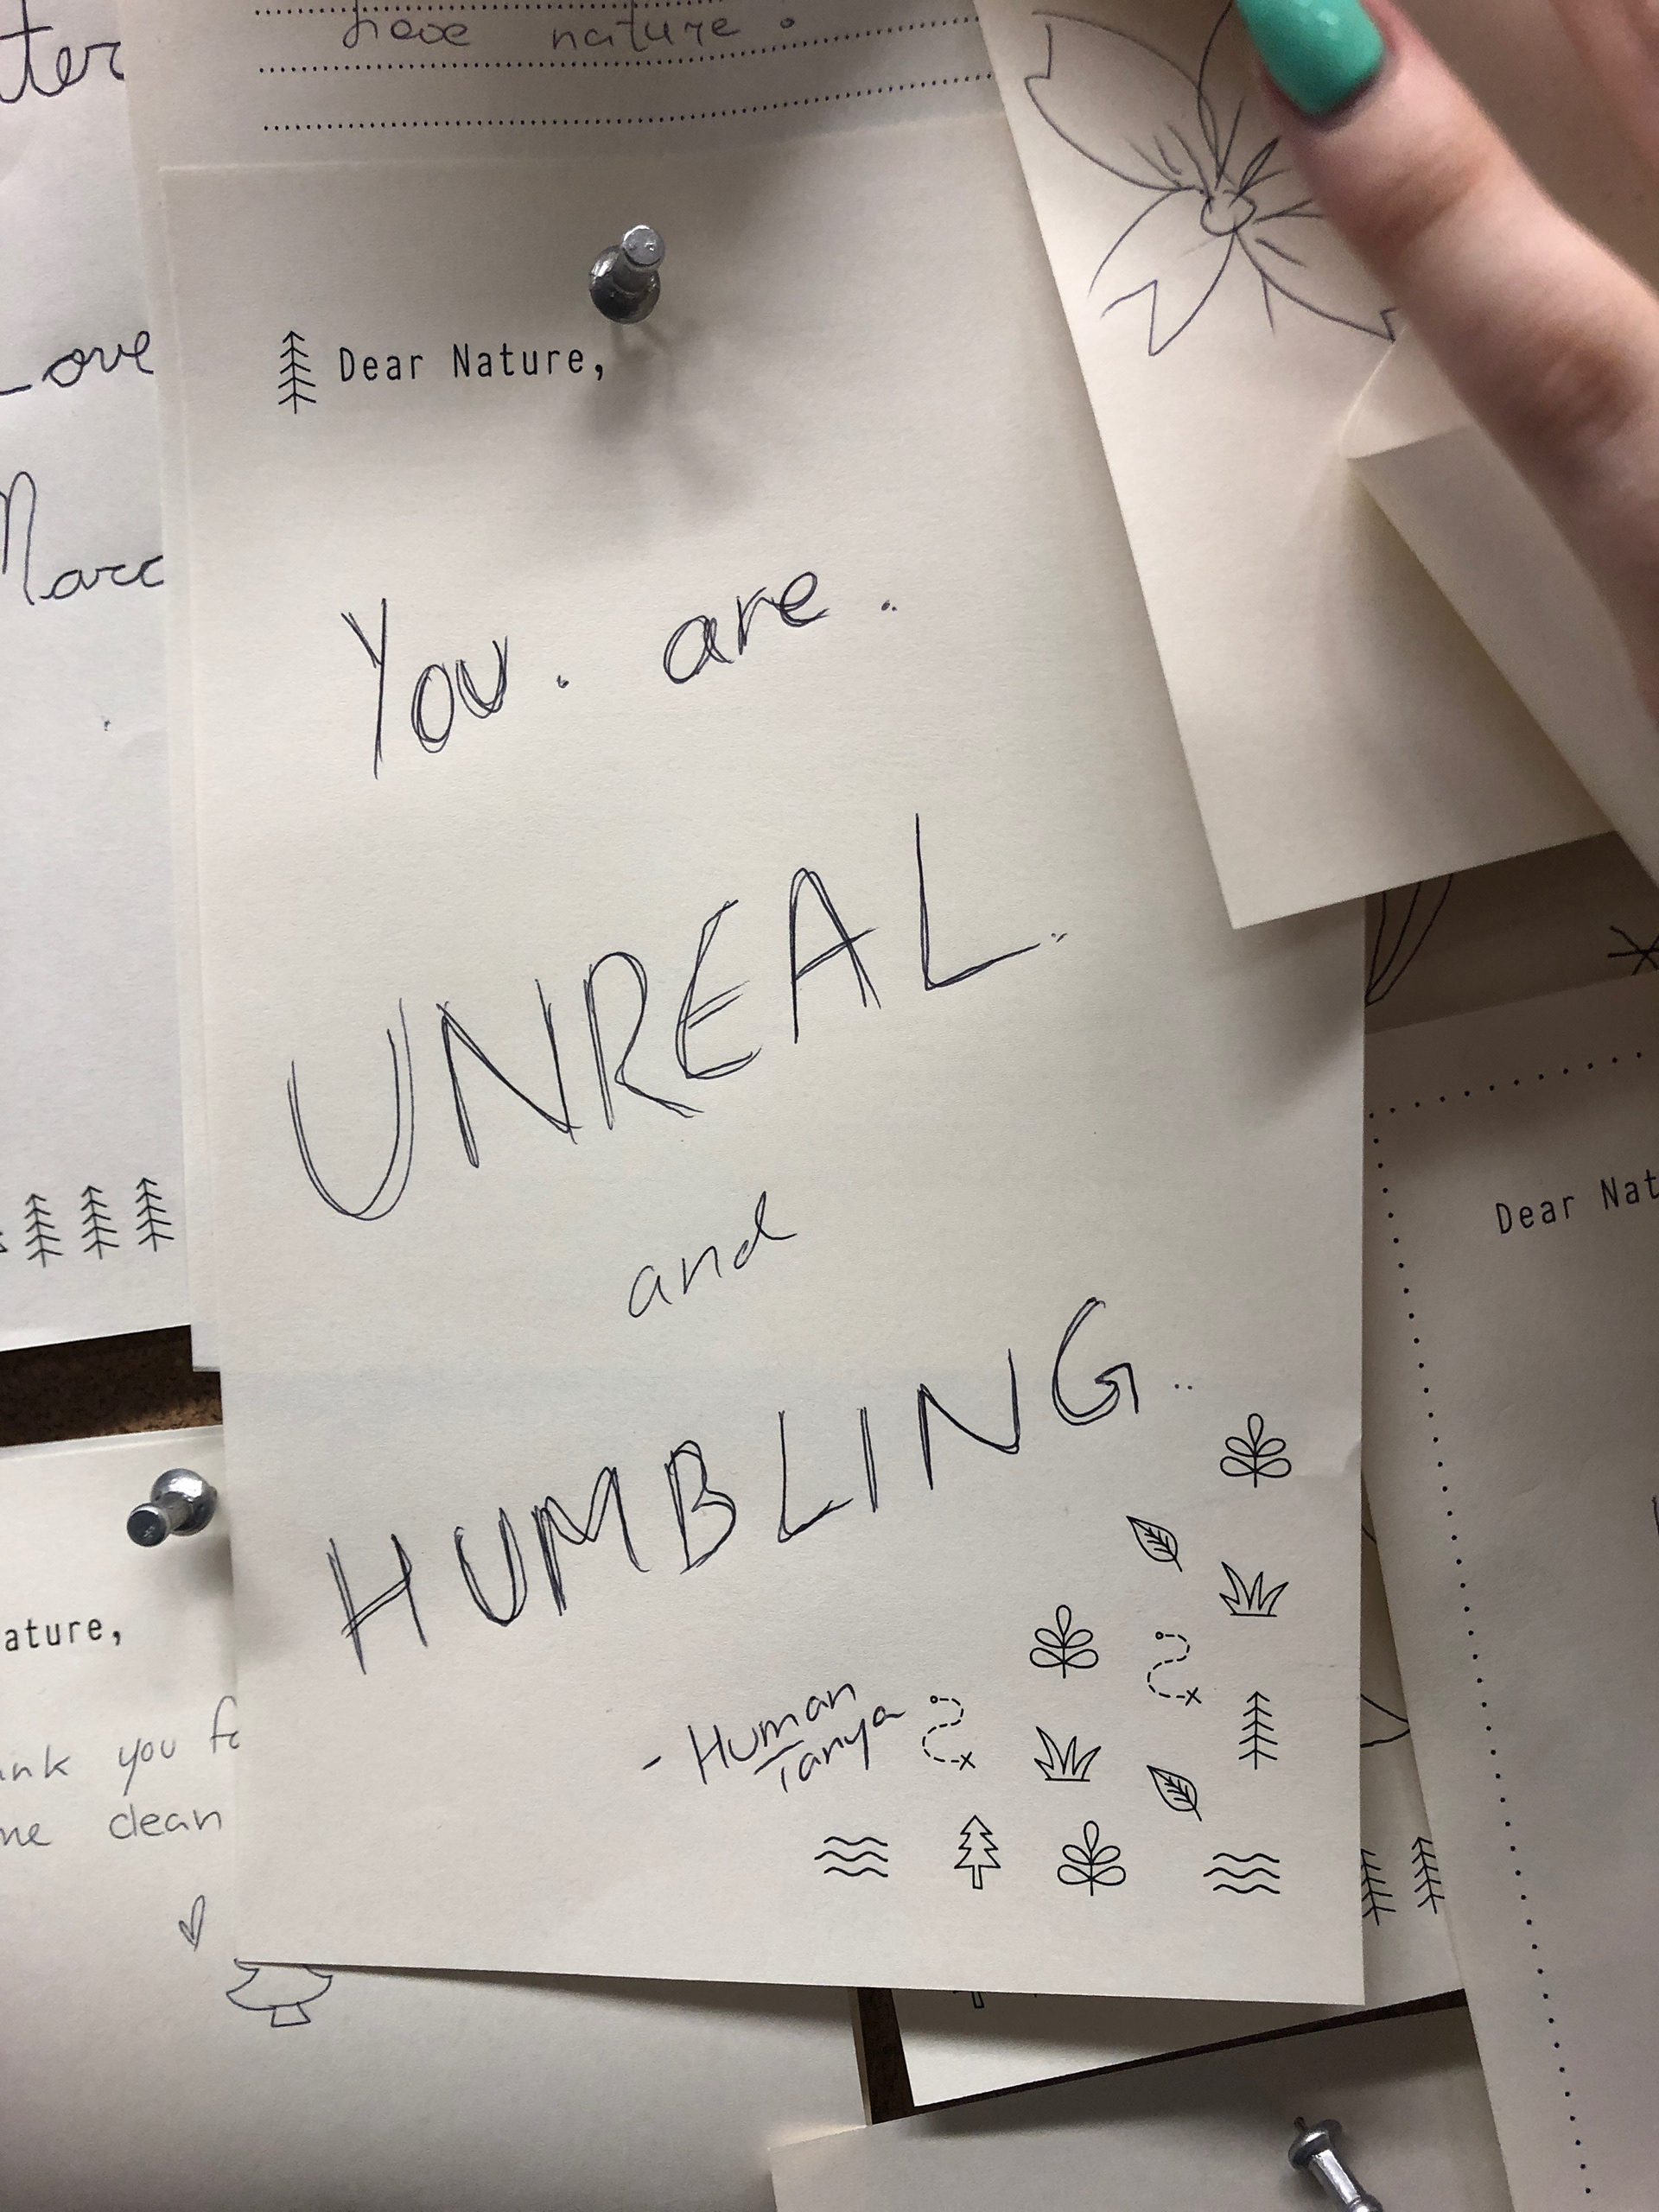 have nature.
ter
Love
Marc
Dear Nature,
You. are.
UNREAL.
and
HUMBLING..
- Human
Tanya
Dear Nat
ature,
ank you fo
me clean